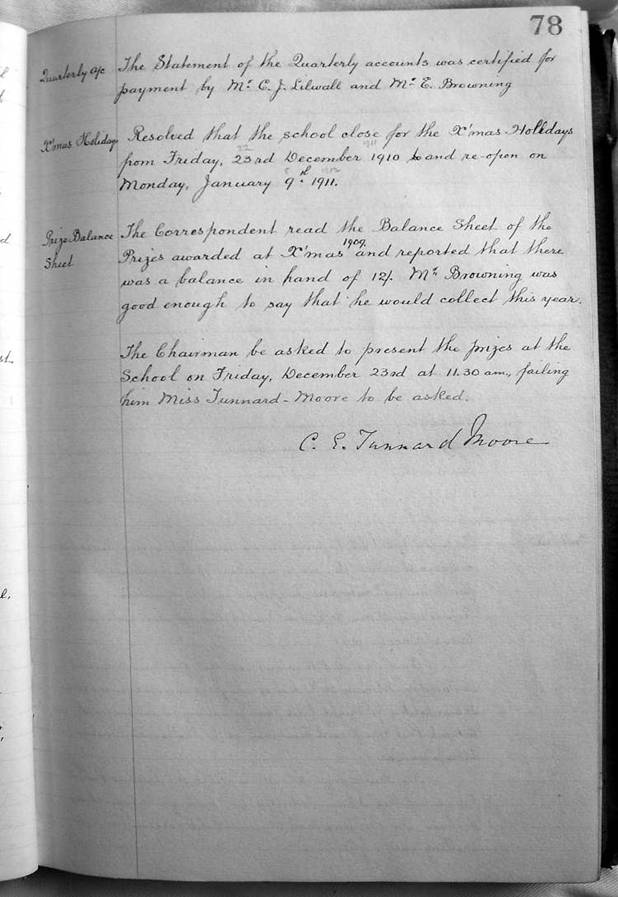 78
Quarterly a/c The Statement of the Quarterly accounts was certified for
payment by Mr. C. J. Lilwall and Mr. E. Browning
X'mas Holidays Resolved that the school close for the X'mas Holidays
22 911
from Friday, 23rd December 1910 and re-open on
8 1912
Monday, January 9th 1911.
Prize Balance The Correspondent read the Balance Sheet of the
1909
Sheet Prizes awarded at X'mas and reported that there
was a balance in hand of 12/. Mr. Browning was
good enough to say that he would collect this year.
The Chairman be asked to present the prizes at the
School on Friday, December 23rd at 11.30 am., failing
him Miss Tunnard-Moore to be asked.
C. E. Tunnard Moore